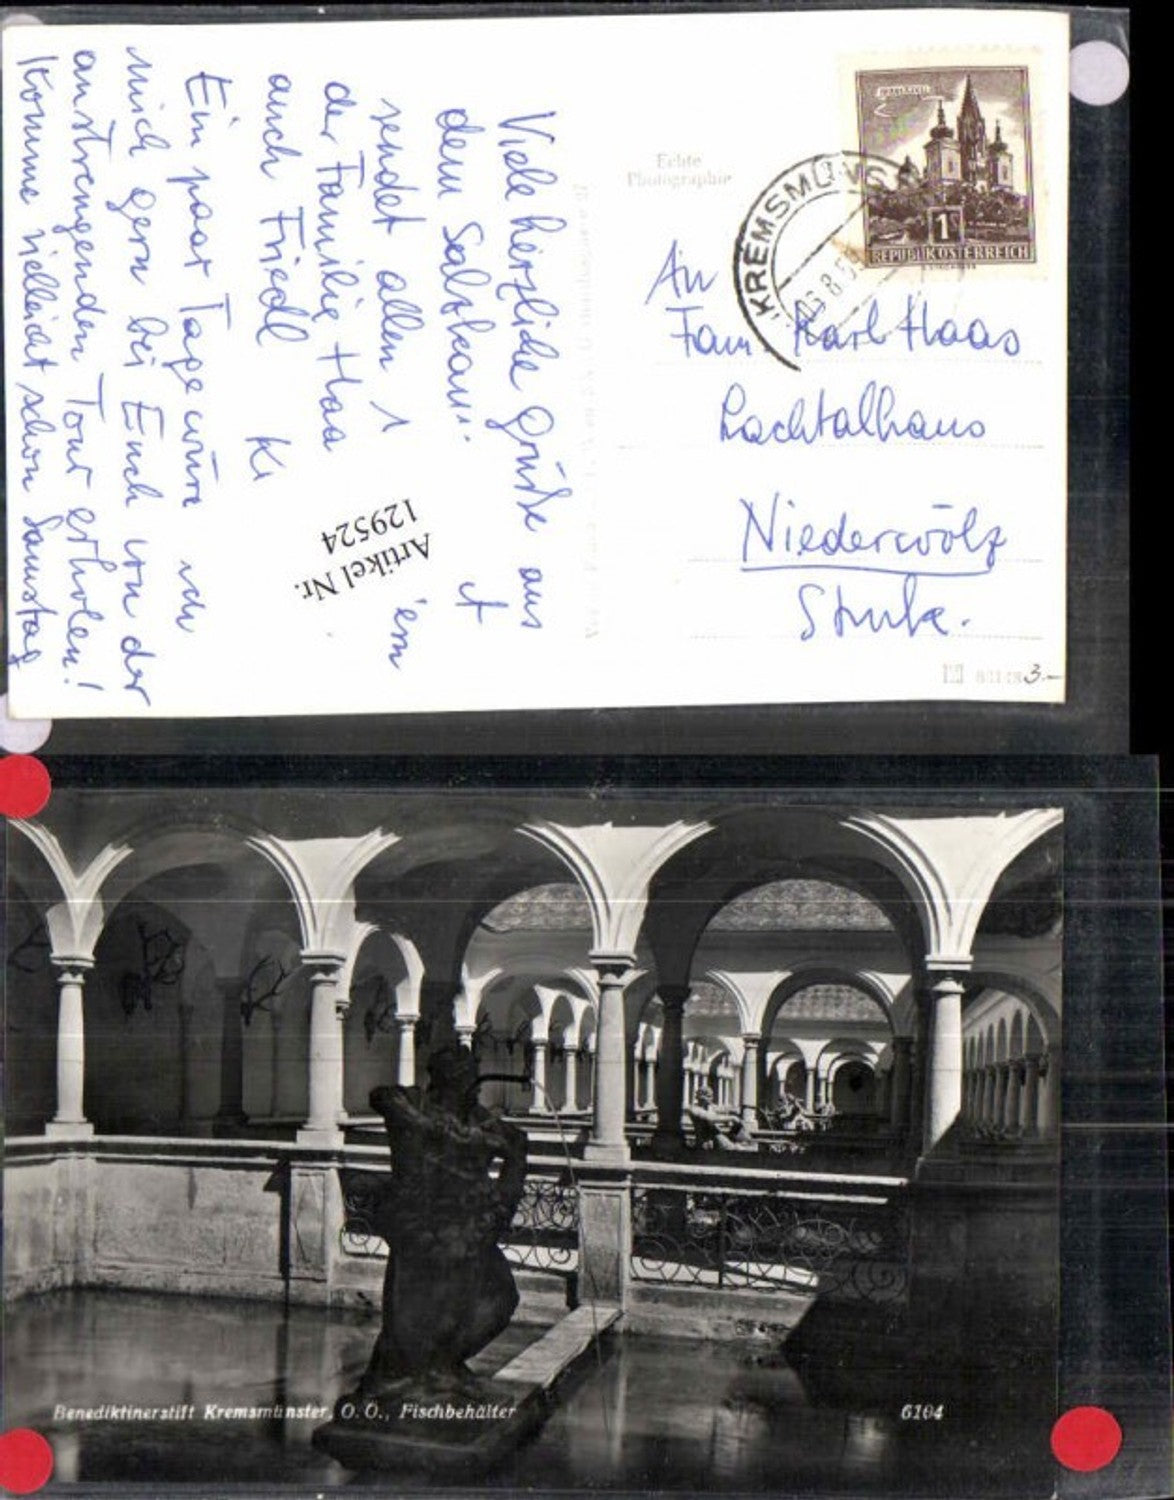 Viele herzliche Grüße aus
dem Salzkam.
sendet allen
der Familie Haa
auch Friedl
Ein paar Tage wäre ich
mich gern bei Euch von der
anstrengenden Tour erholen!
Komme vielleicht schon Samstag
Artikel Nr.
129524
Echte
Photographie
KREMSMÜNS
REPUBLIK ÖSTERREICH
1
An
Fam. Karl Haas
Lachtalhaus
Niederwölz
Stmk.
3.-
Benediktinerstift Kremsmünster, O. Ö., Fischbehälter
6104